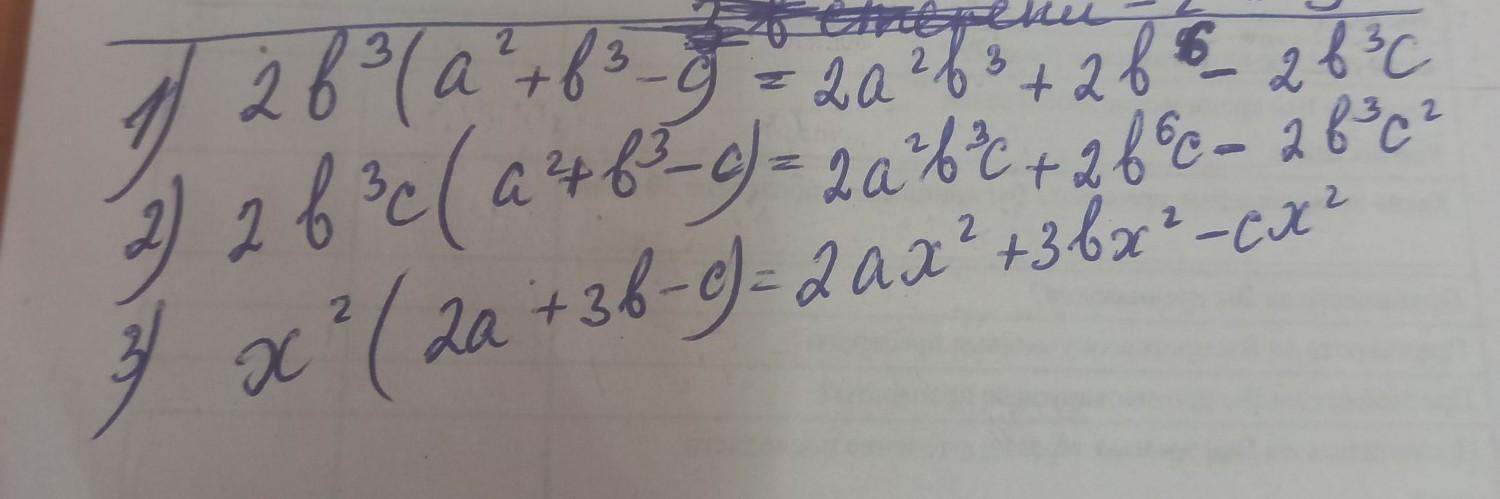 степени - 2
1) 2в³(a²+в³-c) = 2a²в³ + 2в⁶ - 2в³c
2) 2в³c(a²+в³-c) = 2a²в³c + 2в⁶c - 2в³c²
3) x²(2a+3в-c) = 2ax² + 3вx² - cx²